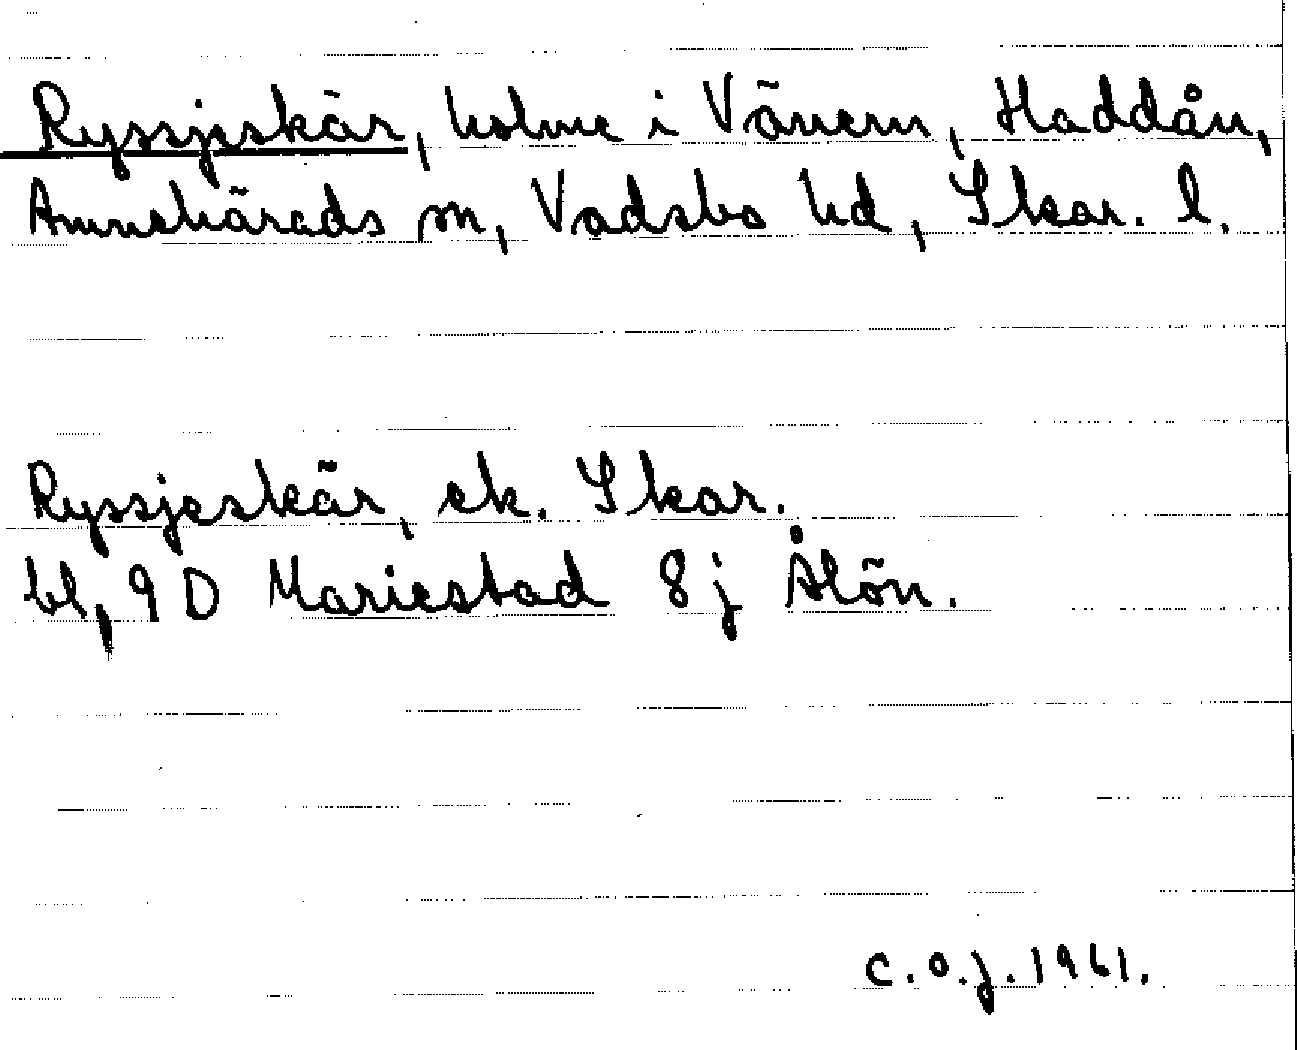 Ryssjeskär, holme i Vänern, Haddån,
Amnehärads sn, Vadsbo hd, Skar. l.
Ryssjeskär, ek. Skar.
bl, 9 D Mariestad 8 j Ålön.
C.O.J. 1961.